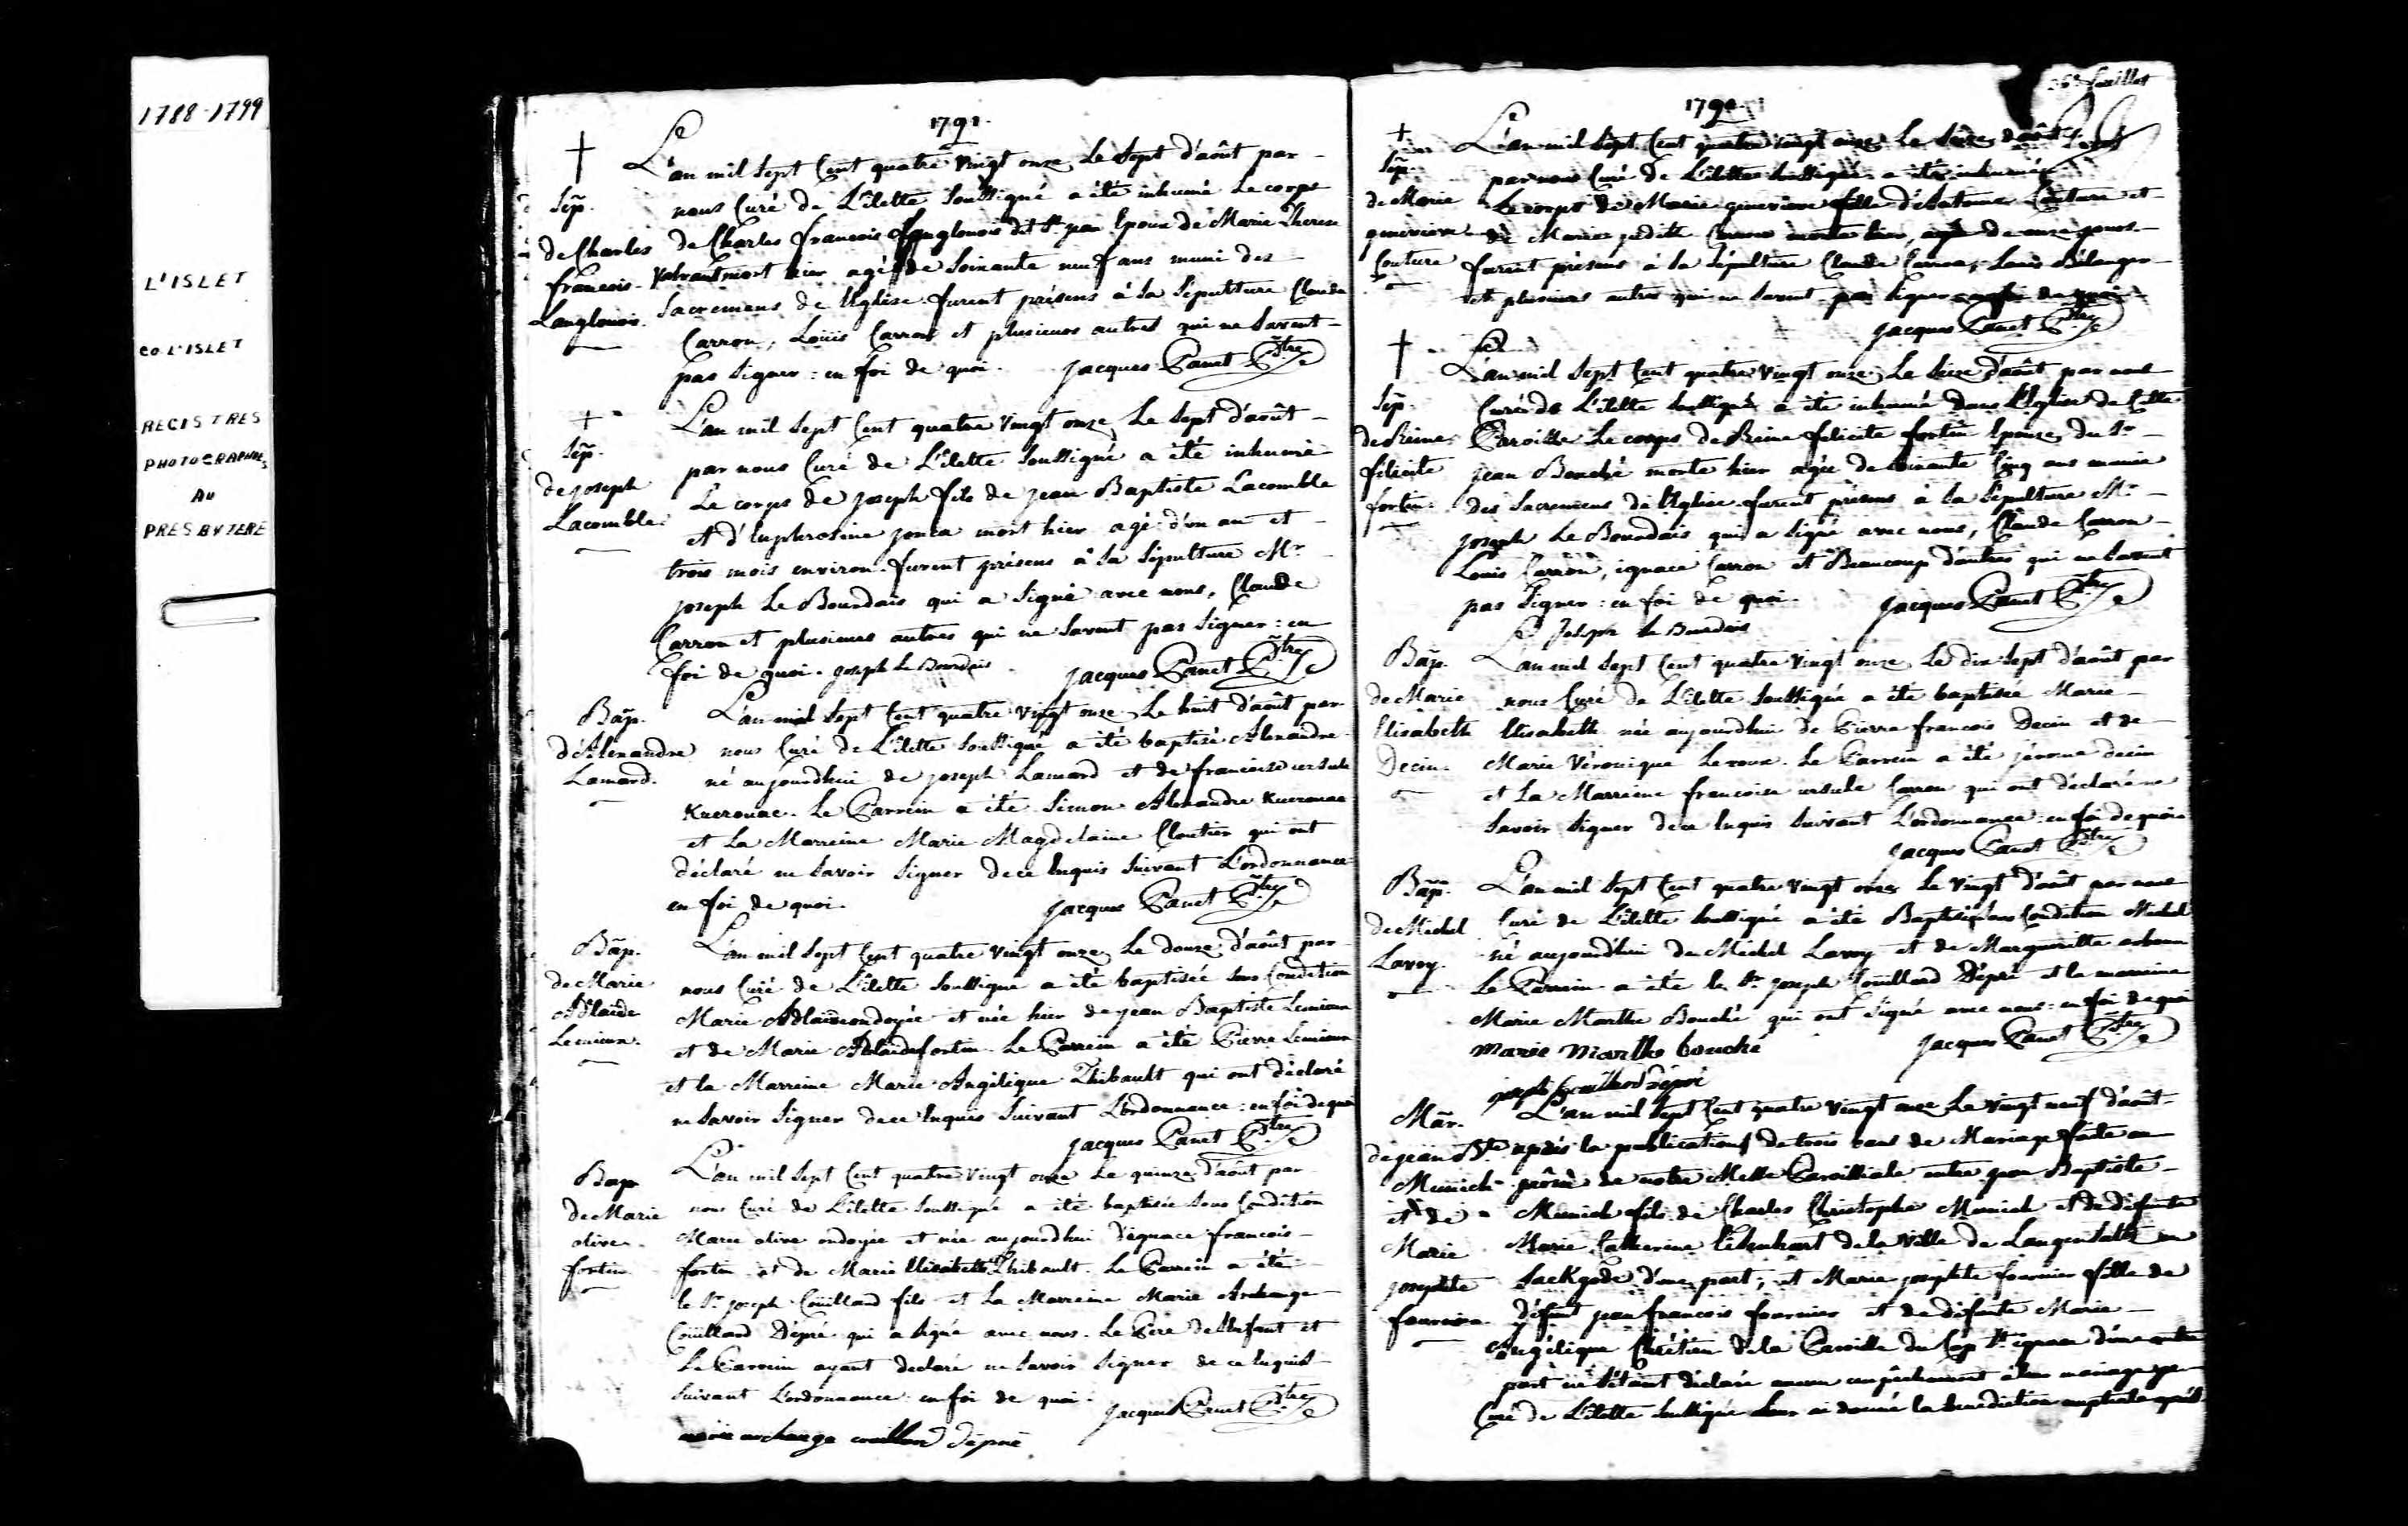 1788-1799
L'ISLET
CO. L'ISLET
REGISTRES
PHOTOGRAPHIÉS
AU
PRESBYTERE
1791.
L'an mil Sept Cent quatre vingt onze, Le Sept d'aôut par
Sep. nous Curé de L'ilette Soussigné a été inhumé Le corps
de Charles de Charles francois Langlouois dit St jean Epoux de Marie Therese
francois mort hier agé de Soixante neuf ans muni des
Langlouois. Sacremens de l'Eglise. furent présens à Sa Sépulture Claude
Carron, Louis Carron et plusieurs autres qui ne Savent
pas Signer : en foi de quoi. Jacques Panet Ptre
L'an mil Sept Cent quatre Vingt onze, Le Sept d'aôut
Sep. par nous Curé de L'ilette Soussigné a été inhumé
de joseph Le corps de joseph fils de jean Baptiste Lacomble
Lacomble. et d'Euphrosine mort hier agé d'un an et
trois mois environ. furent présens à Sa Sépulture Mr
joseph Le Bourdais qui a Signé avec nous, Claude
Carron et plusieurs autres qui ne Savent pas Signer : en
foi de quoi. joseph Le Bourdais Jacques Panet Ptre
Bap. L'an mil Sept Cent quatre Vingt onze, Le huit d'aôut par
d'Alexandre nous Curé de L'ilette Soussigné a été baptisé Alexandre
Lamard. né aujourdhui de joseph Lamard et de francoise ursule
Kuerouac. Le Parrein a été Simon Alexandre Kuerouac
et La Marreine Marie Magdelaine Cloutier qui ont
déclaré ne Savoir Signer de ce Enquis Suivant L'ordonnance
en foi de quoi. Jacques Panet Ptre
Bap. L'an mil Sept Cent quatre Vingt onze, Le douze d'aôut par
de Marie nous Curé de L'ilette Soussigné a été baptisée Sous Condition
Adlaide Marie Adlaide ondoyée et née hier de jean Baptiste Lemieux
Lemieux. et de Marie Adlaide fortin. Le Parrein a été Pierre Lemieux
et la Marreine Marie Angélique Thibault qui ont déclaré
ne Savoir Signer de ce Enquis Suivant L'ordonnance : en foi de quoi
Jacques Panet Ptre
L'an mil Sept Cent quatre Vingt onze Le quinze d'aôut par
Bap nous Curé de L'ilette Soussigné a été baptisée Sous Condition
de Marie Marie olive ondoyée et née aujourdhui d'ignace francois
olive fortin et de Marie Elisabeth Thibault. Le Parrein a été
fortin. le Sr joseph Coüillard fils et La Marreine Marie Archange
Coüillard Dépré qui a Signé avec nous. Le Pere de l'Enfant et
Le Parrein ayant declaré ne Savoir Signer de ce Enquis
Suivant L'ordonnance : en foi de quoi. Jacques Panet Ptre
marie archange couillard dépré
feuillet
1791
L'an mil Sept Cent quatre Vingt onze Le Seize d'aôut
Sep. par nous Curé de L'ilette Soussigné a été inhumé
de Marie Le corps de Marie genevieve fille d'Antoine Couture et
genevieve de Marie judith Carron morte hier, agée de onze jours.
Couture furent présens à Sa Sépulture Claude Carron, Louis Bélanger
et plusieurs autres qui ne Savent pas Signer en foi de quoi
Jacques Panet Ptre
L'an mil Sept Cent quatre Vingt onze, Le Seize d'aôut par nous
Sep. Curé de L'ilette Soussigné a été inhumé dans l'Eglise de Cette
de Reine Paroisse Le corps de Reine felicité fortin Epouse du Sr
felicité jean Bouché morte hier agée de Soixante Cinq ans munie
fortin des Sacremens de l'Eglise. furent présens à Sa Sépulture Mr
joseph Le Bourdais qui a Signé avec nous, Claude Carron
Louis Carron, ignace Carron et Beaucoup d'autres qui ne Savent
pas Signer : en foi de quoi. Jacques Panet Ptre
Joseph le Bourdais
Bap. L'an mil Sept Cent quatre Vingt onze, Le dix Sept d'aôut par
de Marie nous Curé de L'ilette Soussigné a été baptisée Marie
Elisabeth Elisabeth née aujourdhui de Pierre francois Decin et de
Decin. Marie Véronique Leroux. Le Parrein a été jérome decin
et La Marreine francoise ursule Carron qui ont déclaré ne
Savoir Signer de ce Enquis Suivant L'ordonnance : en foi de quoi
Jacques Panet Ptre
Bap. L'an mil Sept Cent quatre Vingt onze Le Vingt d'aôut par nous
de Michel Curé de L'ilette Soussigné a été Baptisé Sous Condition Michel
Lavoy. né aujourdhui de Michel Lavoy et de Marguerite
Le Parrein a été le Sr joseph Coüillard Dépré et la marreine
Marie Marthe Bouché qui ont Signé avec nous : en foi de quoi
marie marthe bouché Jacques Panet Ptre
joseph couillard dépré
Mar. L'an mil Sept Cent quatre Vingt onze Le Vingt neuf d'aôut
de jean Bte après la publication de trois bans de Mariage faite au
Munich prône de notre Messe Paroissiale entre jean Baptiste
et de Munich fils de Charles Christophe Munich et de défunte
Marie Marie Catherine de la Ville de Langensaltz en
josephte d'une part ; et Marie josephte fournier fille de
fournier. défunt jean francois fournier et de défunte Marie
Angélique Chrétien de la Paroisse du Cap St ignace d'une autre
part ne S'étant déclaré aucun empêchement à leur mariage je
Curé de L'ilette Soussigné leur ai donné la bénédiction nuptiale après